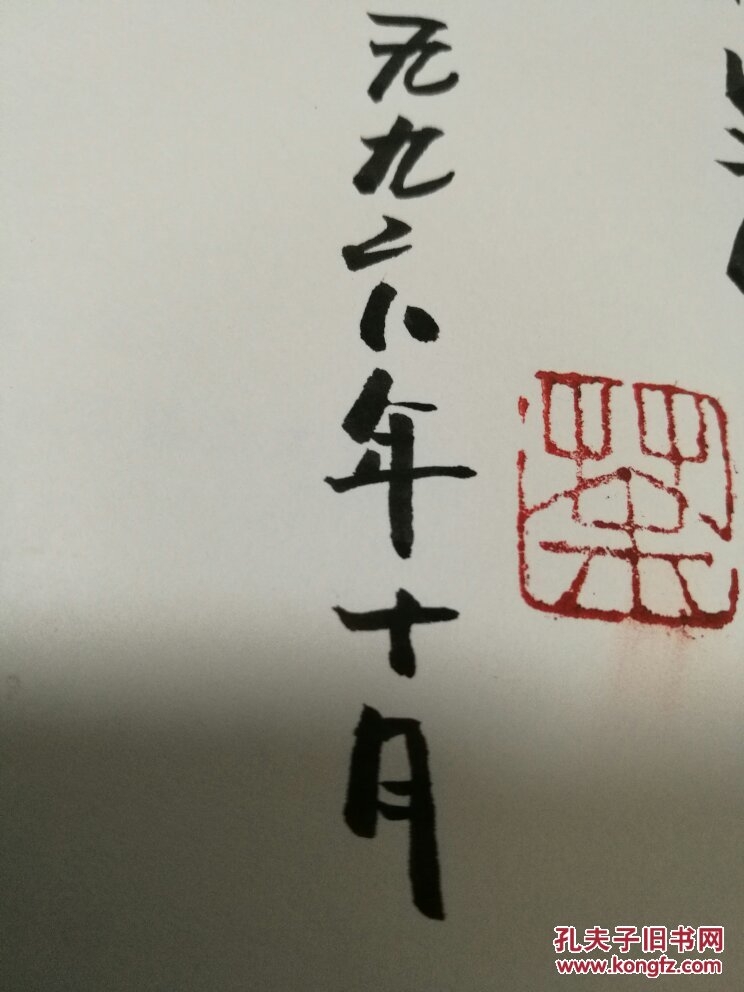 一九九六年十月
孔夫子旧书网
www.kongfz.com